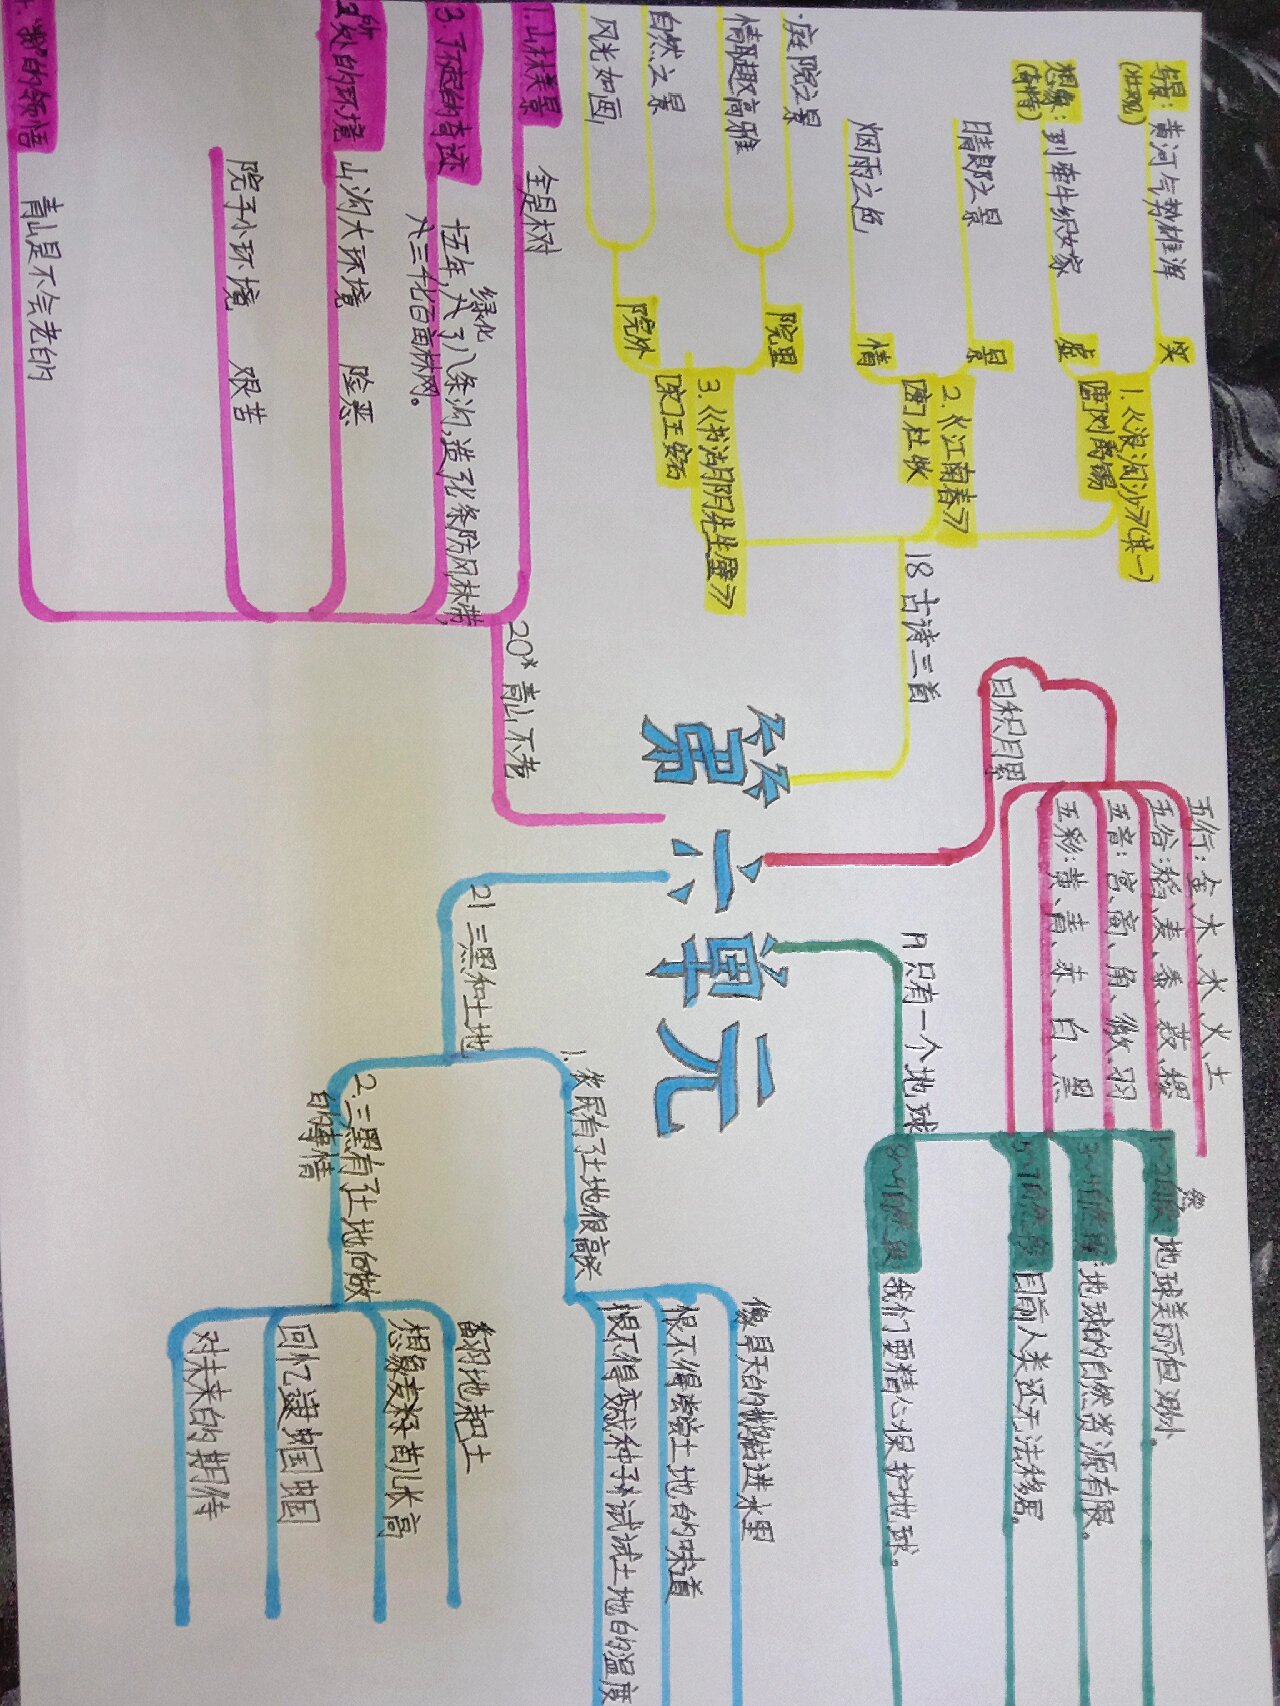 第六单元
18 古诗三首
1.《浪淘沙》(其一)
[唐]刘禹锡
实
黄河气势雄浑
(壮观)
虚
想象:
到牵牛织女家
2.《江南春》
[唐]杜牧
景
晴朗之景
情
烟雨之色
3.《书湖阴先生壁》
[宋]王安石
院里
庭院之景
情趣高雅
院外
自然之景
风光如画
日积月累
五行:金、木、水、火、土
五谷:稻、麦、黍、菽、稷
五音:宫、商、角、徵、羽
五彩:黄、青、赤、白、黑
19 只有一个地球
1~2自然段
地球美丽但渺小。
3~4自然段:
地球的自然资源有限。
5~7自然段
目前人类还无法移居。
8~9自然段
我们要精心保护地球。
20* 青山不老
1.山林美景
全是树
3.了不起的奇迹
绿化
八条沟,造
条防风林带,
三千七百亩林网。
所处的环境
山沟大环境 险恶
院子小环境 艰苦
"我"的领悟
青山是不会老的
21 三黑和土地
1.农民有了土地很高兴
像旱天的蛤蟆进水里
恨不得尝尝土地的味道
恨不得变成种子试试土地的温度
2.三黑有了土地后做
的事情
翻地耙土
想象麦籽苗儿长高
回忆逮蝈蝈
对未来的期待